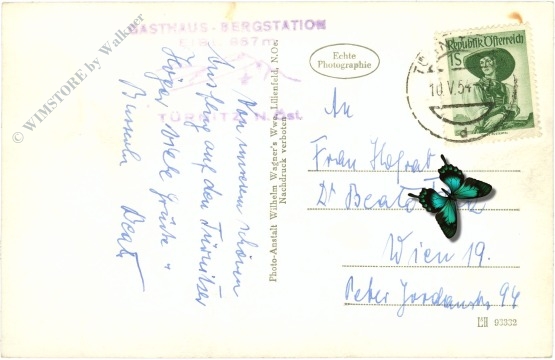 © WIMSTORE by Walkner
GASTHAUS-BERGSTATION
867m
TÜRNITZ N.Öst
Von unserem schönen
Ausflug auf den Türnitzer
Höger viele Grüße u
Busserln Beate
Photo-Anstalt Wilhelm Wagner's Wwe., Lilienfeld, N.Oe.
Nachdruck verboten
Echte
Photographie
Republik Österreich
1S
10.V.54
d
An
Frau Hofrat
Dr Beate
Wien 19.
Peter Jordanstr 94
93332